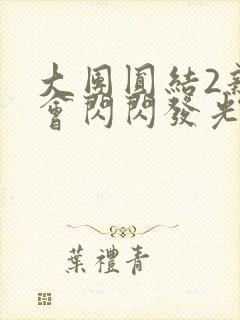 大團圓結2
會閃閃發光
葉禮青